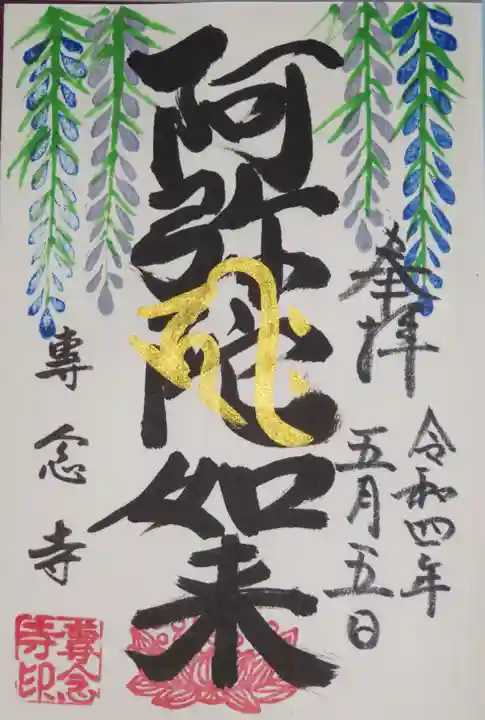 奉拝
令和四年
五月五日
阿弥陀如来
專念寺
專念寺印